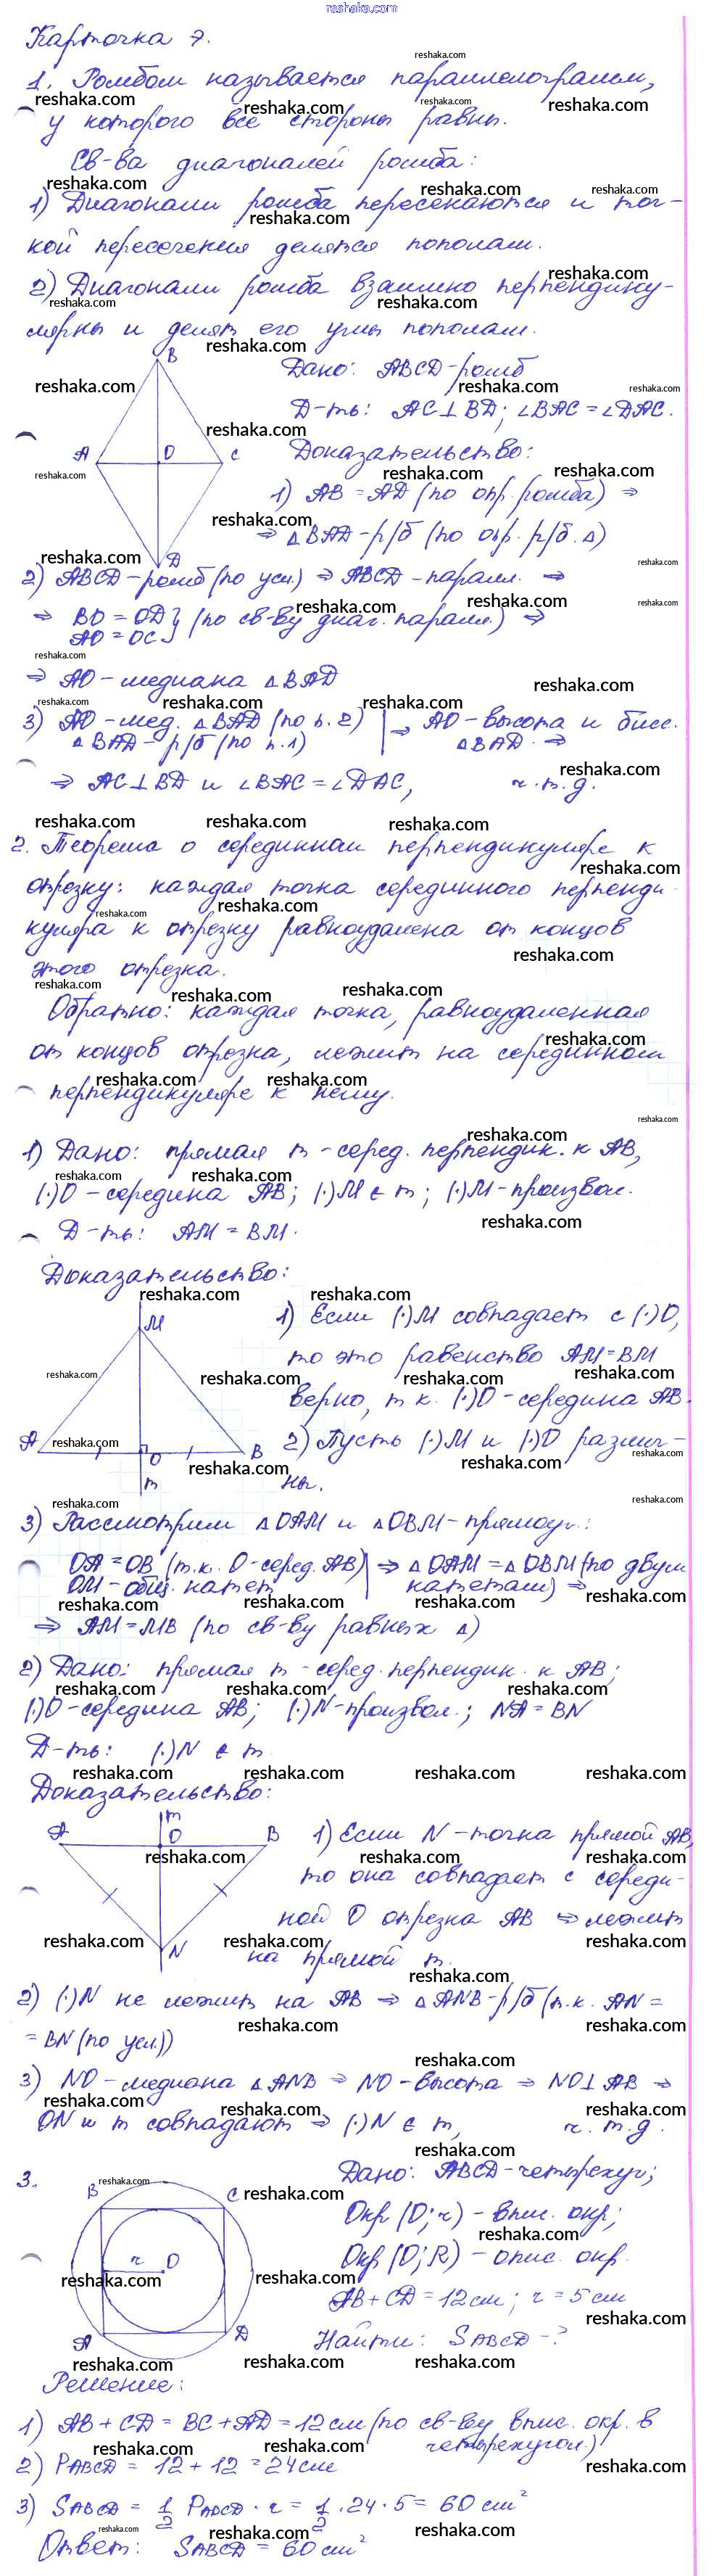 reshaka.com
Карточка 7.
1. Ромбом называется параллелограмм,
у которого все стороны равны.
Св-ва диагоналей ромба:
1) Диагонали ромба пересекаются и точ-
кой пересечения делятся пополам.
2) Диагонали ромба взаимно перпендику-
лярны и делят его углы пополам.
Дано: ABCD-ромб
Д-ть: AC⊥BD; ∠BAC=∠DAC.
B
A O C
D
Доказательство:
1) AB=AD (по опр. ромба) ⇒
⇒ △BAD-р/б (по опр. р/б. △)
2) ABCD-ромб (по усл.) ⇒ ABCD-паралл. ⇒
⇒ BO=OD } (по св-ву диаг. паралл.) ⇒
AO=OC
⇒ AO-медиана △BAD
3) AO-мед. △BAD (по п.2) | ⇒ AO-высота и бисс.
△BAD-р/б (по п.1) △BAD. ⇒
⇒ AC⊥BD и ∠BAC=∠DAC, ч.т.д.
2. Теорема о серединном перпендикуляре к
отрезку: каждая точка серединного перпенди-
куляра к отрезку равноудалена от концов
этого отрезка.
Обратно: каждая точка, равноудаленная
от концов отрезка, лежит на серединном
перпендикуляре к нему.
1) Дано: прямая m-серед. перпендик. к AB,
(·)O-середина AB; (·)M ∈ m; (·)M-произвол.
Д-ть: AM=BM.
Доказательство:
M
A O B
m
1) Если (·)M совпадает с (·)O,
то это равенство AM=BM
верно, т.к. (·)O-середина AB.
2) Пусть (·)M и (·)O различ-
ны.
3) Рассмотрим △OAM и △OBM-прямоуг.:
OA=OB (т.к. O-серед. AB) | ⇒ △OAM=△OBM (по двум
OM-общ. катет катетам) ⇒
⇒ AM=MB (по св-ву равных △)
2) Дано: прямая m-серед. перпендик. к AB;
(·)O-середина AB; (·)N-произвол.; NA=BN
Д-ть: (·)N ∈ m.
Доказательство:
m
A O B
N
1) Если N-точка прямой AB,
то она совпадает с середи-
ной O отрезка AB ⇒ лежит
на прямой m.
2) (·)N не лежит на AB ⇒ △ANB-р/б (т.к. AN=
=BN (по усл.))
3) NO-медиана △ANB ⇒ NO-высота ⇒ NO⊥AB ⇒
ON и m совпадают ⇒ (·)N ∈ m, ч.т.д.
3.
B C
r O
A D
Дано: ABCD-четырехуг;
Окр (O;r) - впис. окр;
Окр (O;R) - опис. окр.
AB+CD=12см; r=5см
Найти: S ABCD -?
Решение:
1) AB+CD=BC+AD=12см (по св-ву впис. окр. в
четырехугол.)
2) P ABCD = 12+12=24см
3) S ABCD = 1/2 P ABCD · r = 1/2 · 24 · 5 = 60 см²
Ответ: S ABCD = 60 см²